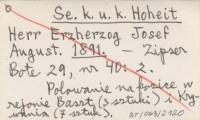 Se. k. u. k. Hoheit
Herr Erzherzog Josef
August. 1891. — Zipser
Bote 29, nr 40: 2.
Polowanie na kozice w
rejonie Basst (3 sztuki) i Kry-
wania (7 sztuk).
BT/049/2120